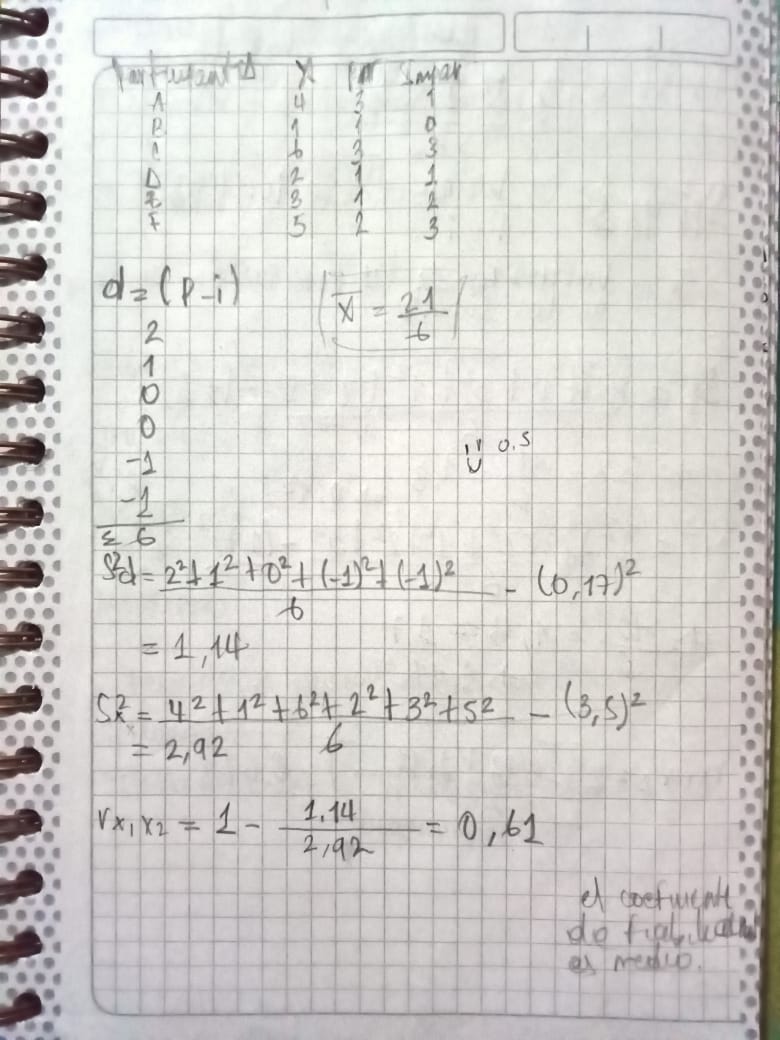 Participantes X Par Impar
A 4 3 1
B 1 1 0
C 6 3 3
D 2 1 1
E 3 1 2
F 5 2 3
d = (P-i)
X̄ = 21/6
2
1
0
0
-1
-1
Σ 6
0.5
S²d = 2² + 1² + 0² + (-1)² + (-1)² / 6 - (0,17)²
= 1,14
Sx² = 4² + 1² + 6² + 2² + 3² + 5² / 6 - (3,5)²
= 2,92
rx₁x₂ = 1 - 1.14 / 2,92 = 0,61
el coeficiente
de fiabilidad
es medio.